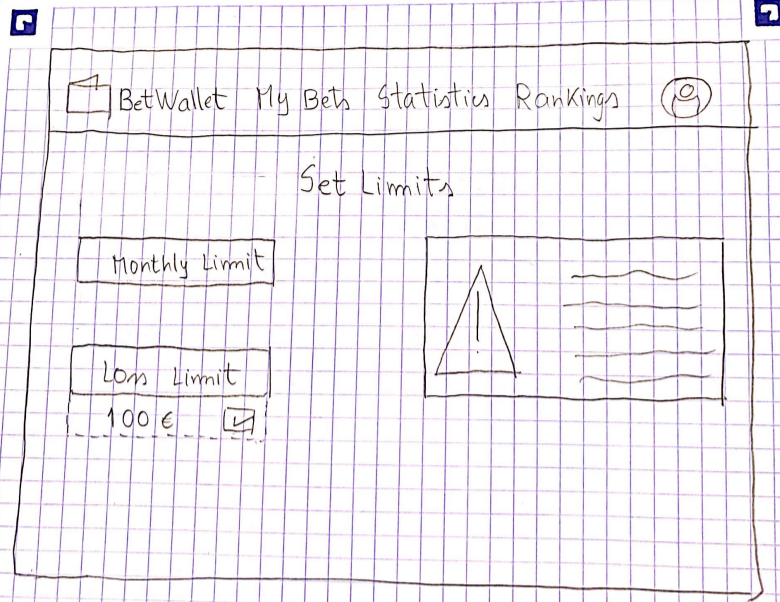 BetWallet My Bets Statistics Rankings
Set Limits
Monthly Limit
Loss Limit
100 €